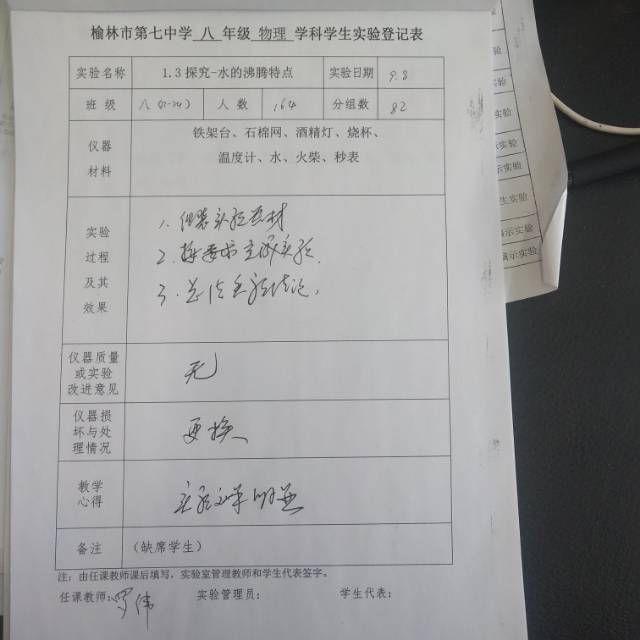 榆林市第七中学 八 年级 物理 学科学生实验登记表
实验名称 1.3探究-水的沸腾特点 实验日期 9.8
班 级 八 人 数 164 分组数 82
仪器材料
铁架台、石棉网、酒精灯、烧杯、
温度计、水、火柴、秒表
实验过程及其效果
1. 组装实验器材
2. 按要求完成实验.
3. 总结实验结论.
仪器质量或实验改进意见 无
仪器损坏与处理情况 更换
教学心得 实验效果明显
备注 (缺席学生)
注:由任课教师课后填写,实验室管理教师和学生代表签字。
任课教师:罗伟 实验管理员: 学生代表:
实验
示实验
示实验